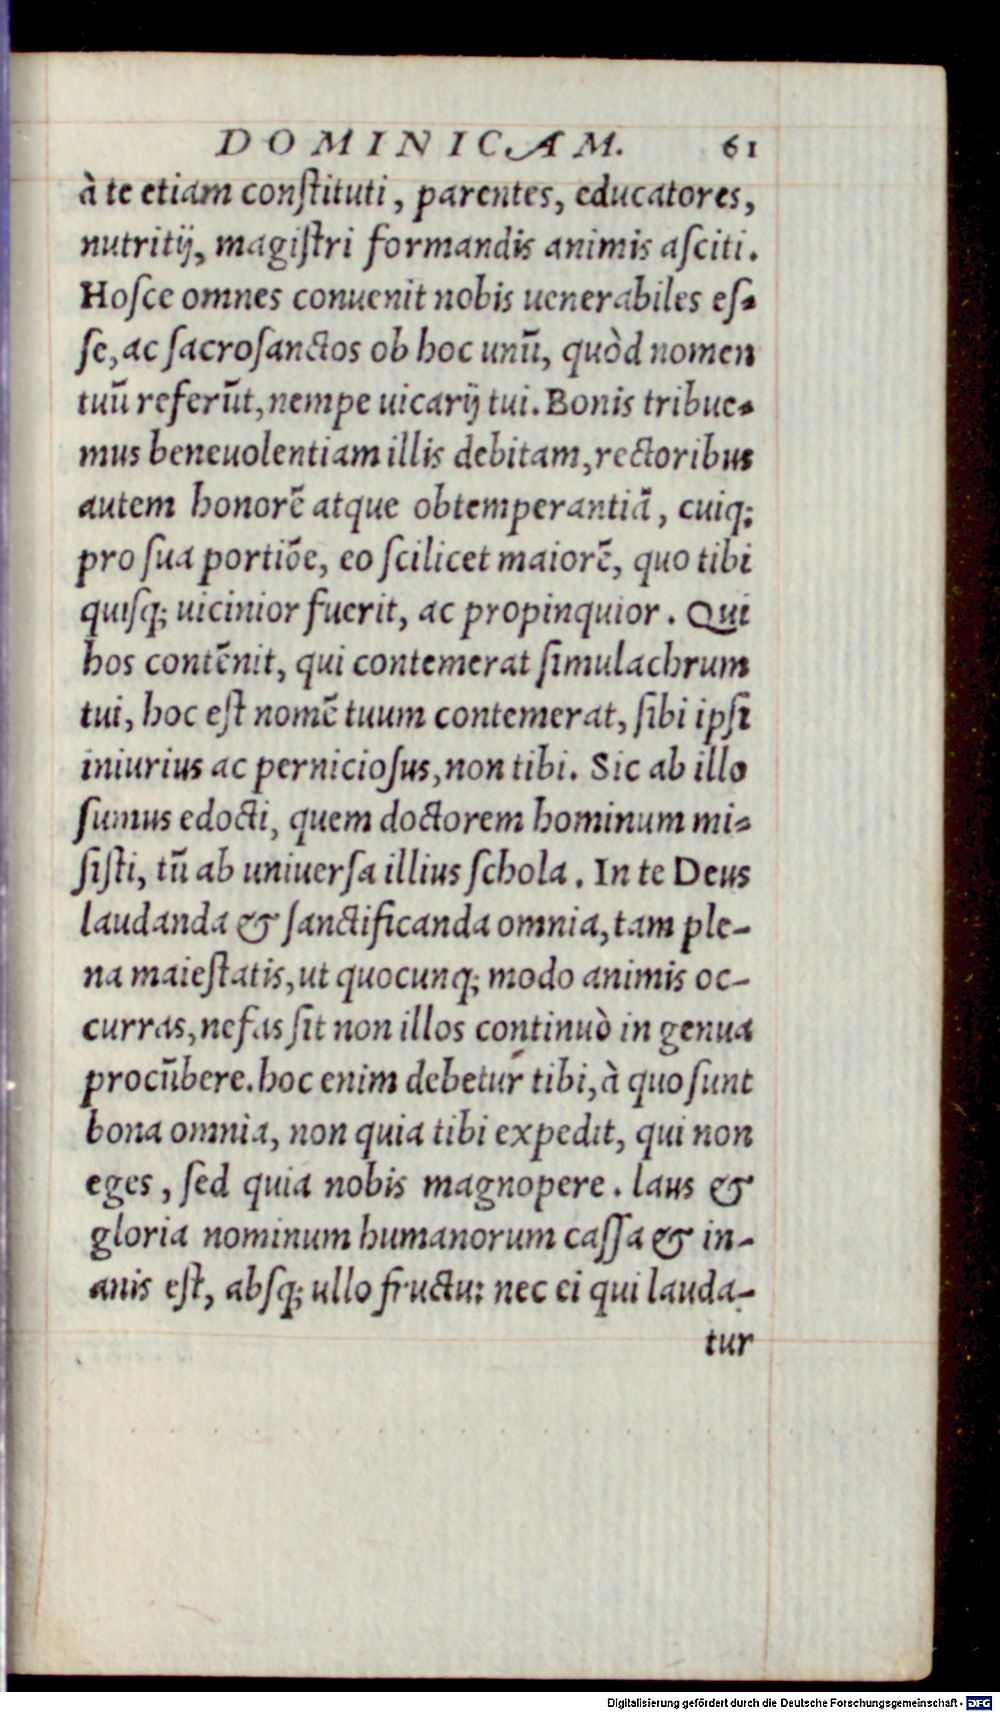 DOMINICAM. 61
à te etiam conſtituti, parentes, educatores,
nutritij, magiſtri formandis animis aſciti.
Hoſce omnes conuenit nobis uenerabiles eſ-
ſe, ac ſacroſanctos ob hoc unū, quòd nomen
tuū referūt, nempe uicarij tui. Bonis tribue-
mus beneuolentiam illis debitam, rectoribus
autem honorē atque obtemperantiā, cuiq;
pro ſua portiōe, eo ſcilicet maiorē, quo tibi
quiſq; uicinior fuerit, ac propinquior. Qui
hos contēnit, qui contemerat ſimulachrum
tui, hoc eſt nomē tuum contemerat, ſibi ipſi
iniurius ac pernicioſus, non tibi. Sic ab illo
ſumus edocti, quem doctorem hominum mi-
ſiſti, tū ab uniuerſa illius ſchola. In te Deus
laudanda & ſanctificanda omnia, tam ple-
na maieſtatis, ut quocunq; modo animis oc-
curras, nefas ſit non illos continuò in genua
procūbere. hoc enim debetur tibi, à quo ſunt
bona omnia, non quia tibi expedit, qui non
eges, ſed quia nobis magnopere. laus &
gloria nominum humanorum caſſa & in-
anis eſt, abſq; ullo fructu: nec ei qui lauda-
tur
Digitalisierung gefördert durch die Deutsche Forschungsgemeinschaft - DFG